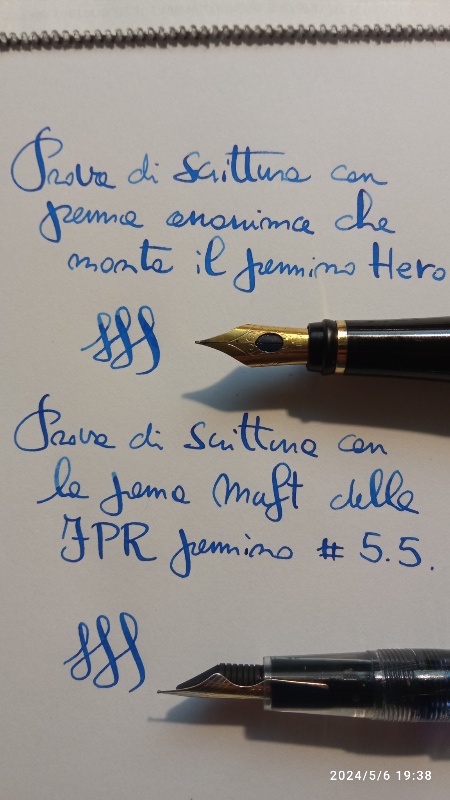 Prova di scrittura con
penna anonima che
monta il pennino Hero
fff
Prova di scrittura con
la penna Muft della
FPR pennino # 5.5.
fff
2024/5/6 19:38